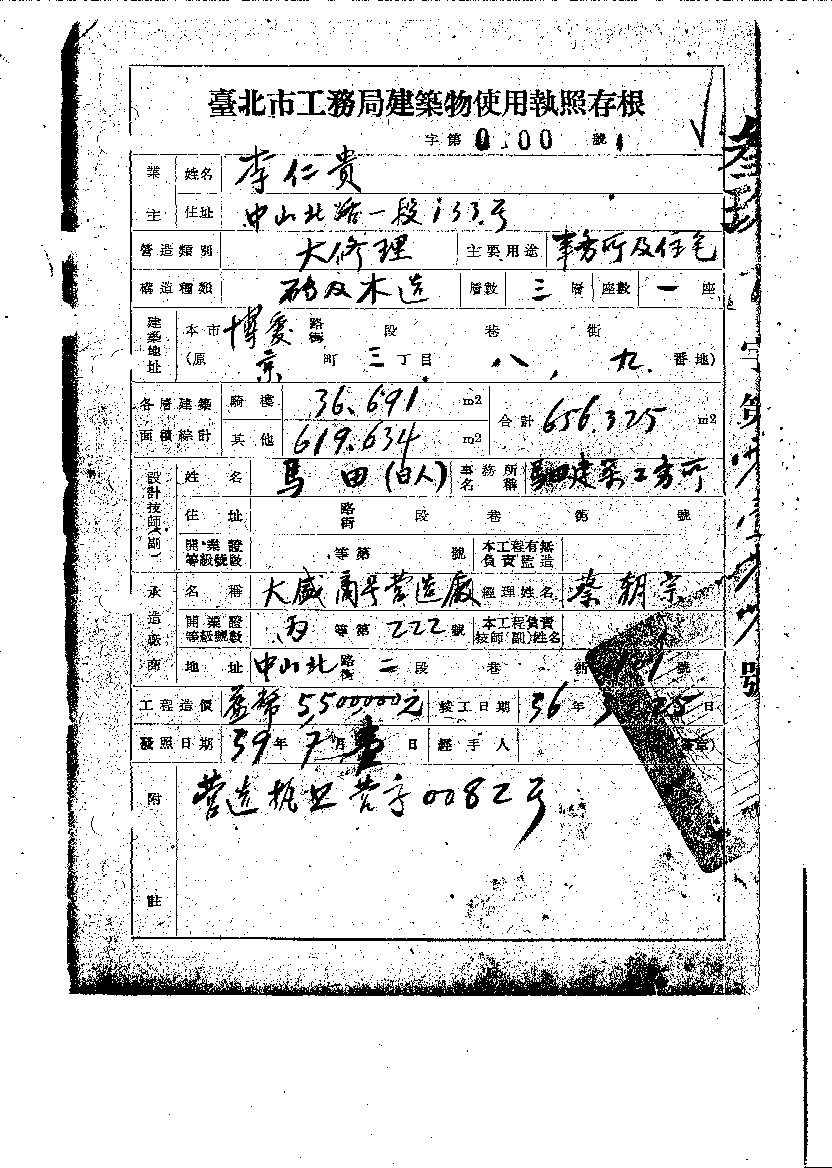 臺北市工務局建築物使用執照存根
字第0.001號
業主 姓名 李仁貴
住址 中山北路一段133号
營造類別 大修理 主要用途 事務所及住宅
構造種類 磚及木造 層數 三 層 座數 一 座
建築地址 本市 博愛 路街 段 巷 街
(原 京 町 三 丁目 八、九 番地)
各層建築面積綜計 騎樓 36.691 m2 合計 656.325 m2
其他 619.634 m2
設計技師(副) 姓名 馬田(日人) 事務所名稱 馬田建築工务所
住址 路街 段 巷 號
開業證等級號數 等第 號 本工程有無負責監造
承造廠商 名稱 大盛商号营造廠 經理姓名 蔡朝宗
開業證等級號數 丙 等第222號 本工程負責技師(副)姓名
地址 中山北路街 二 段 巷 號
工程造價 臺幣5,500000元 竣工日期 36年 25日
發照日期 39年7月壹日 經手人
附註 营造执照营字0082号
字第 號